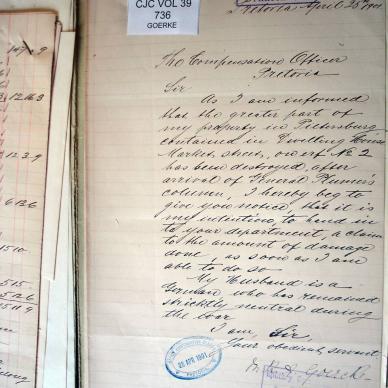 CJC VOL 39
736
GOERKE
Pretoria April 25 1901
The Compensation Officer
Pretoria
Sir
As I am informed
that the greater part of
my property in Pietersburg
contained in Dwelling House
Market street, on erf No 2
has been destroyed, after
arrival of General Plumer's
column, I hereby beg to
give you notice, that it is
my intention, to hand in
to your department, a claim
to the amount of damage
done, as soon as I am
able to do so.
My Husband is a
German who has remained
stricktly neutral during
the war
I am, Sir,
Your obedient servant
Goerke
25 APR 1901